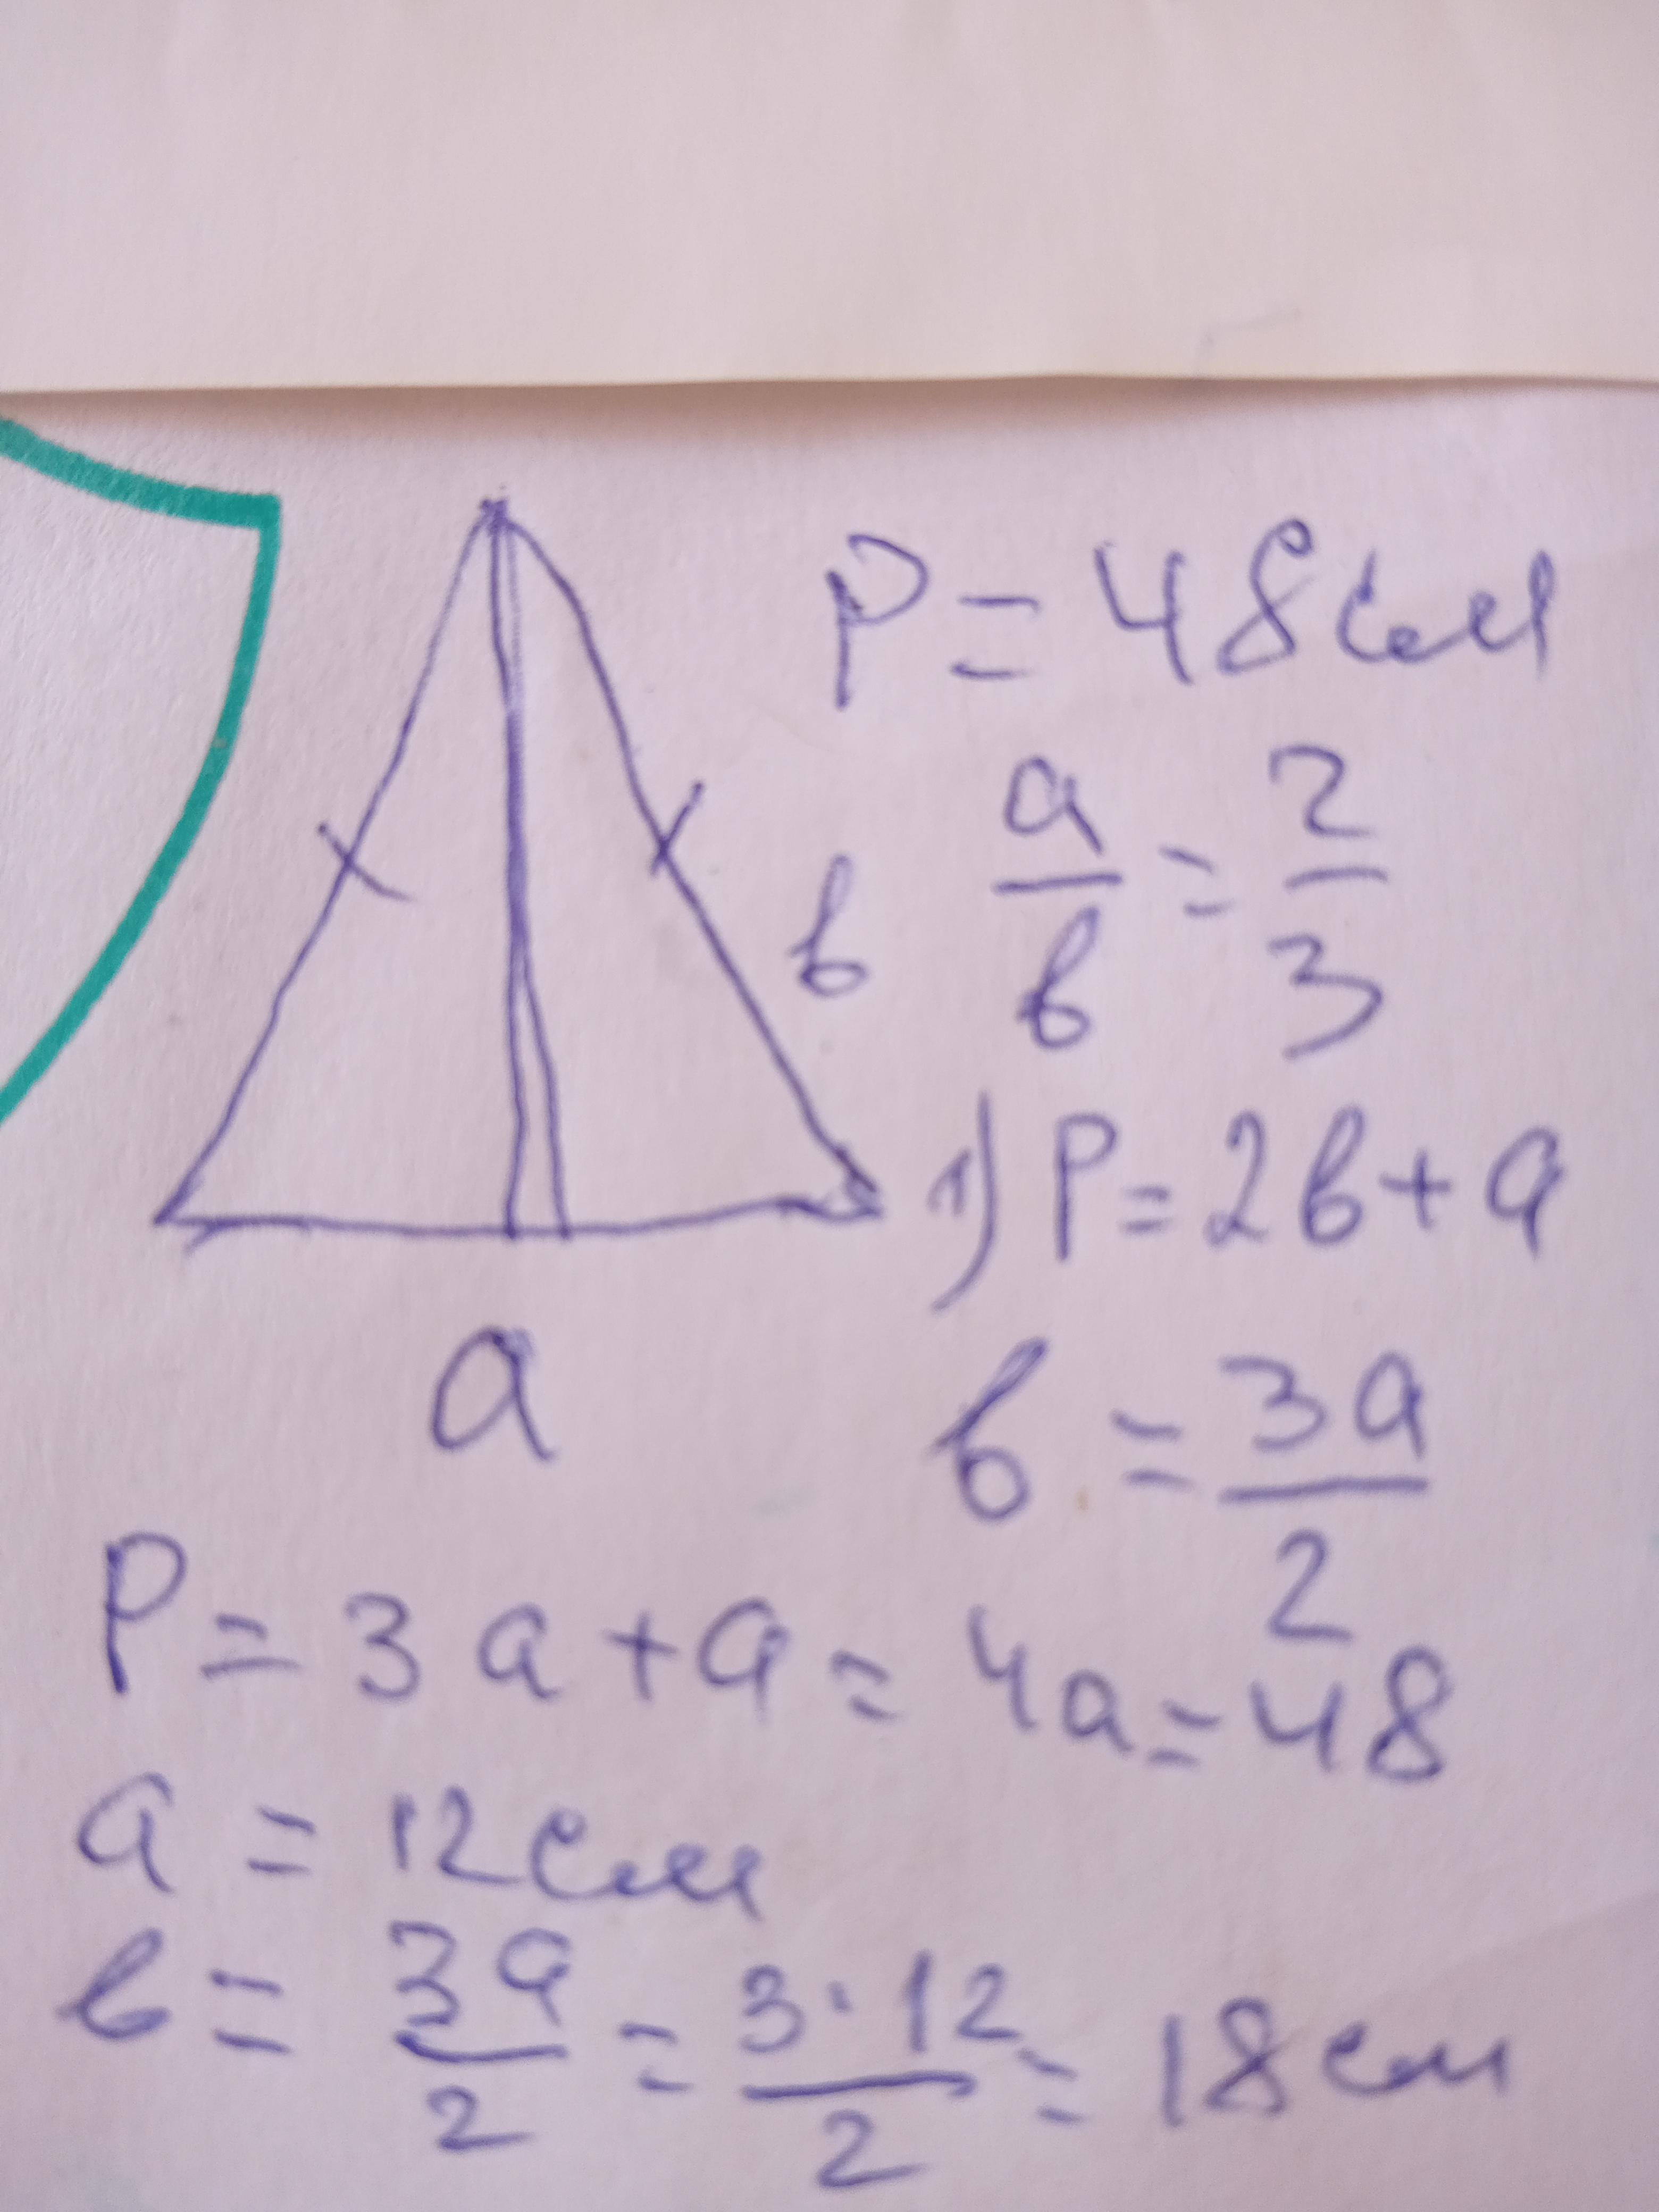 P = 48 см
a/в = 2/3
в
1) P = 2в + a
a
в = 3a/2
P = 3a + a = 4a = 48
a = 12 см
в = 3a/2 = 3·12/2 = 18 см